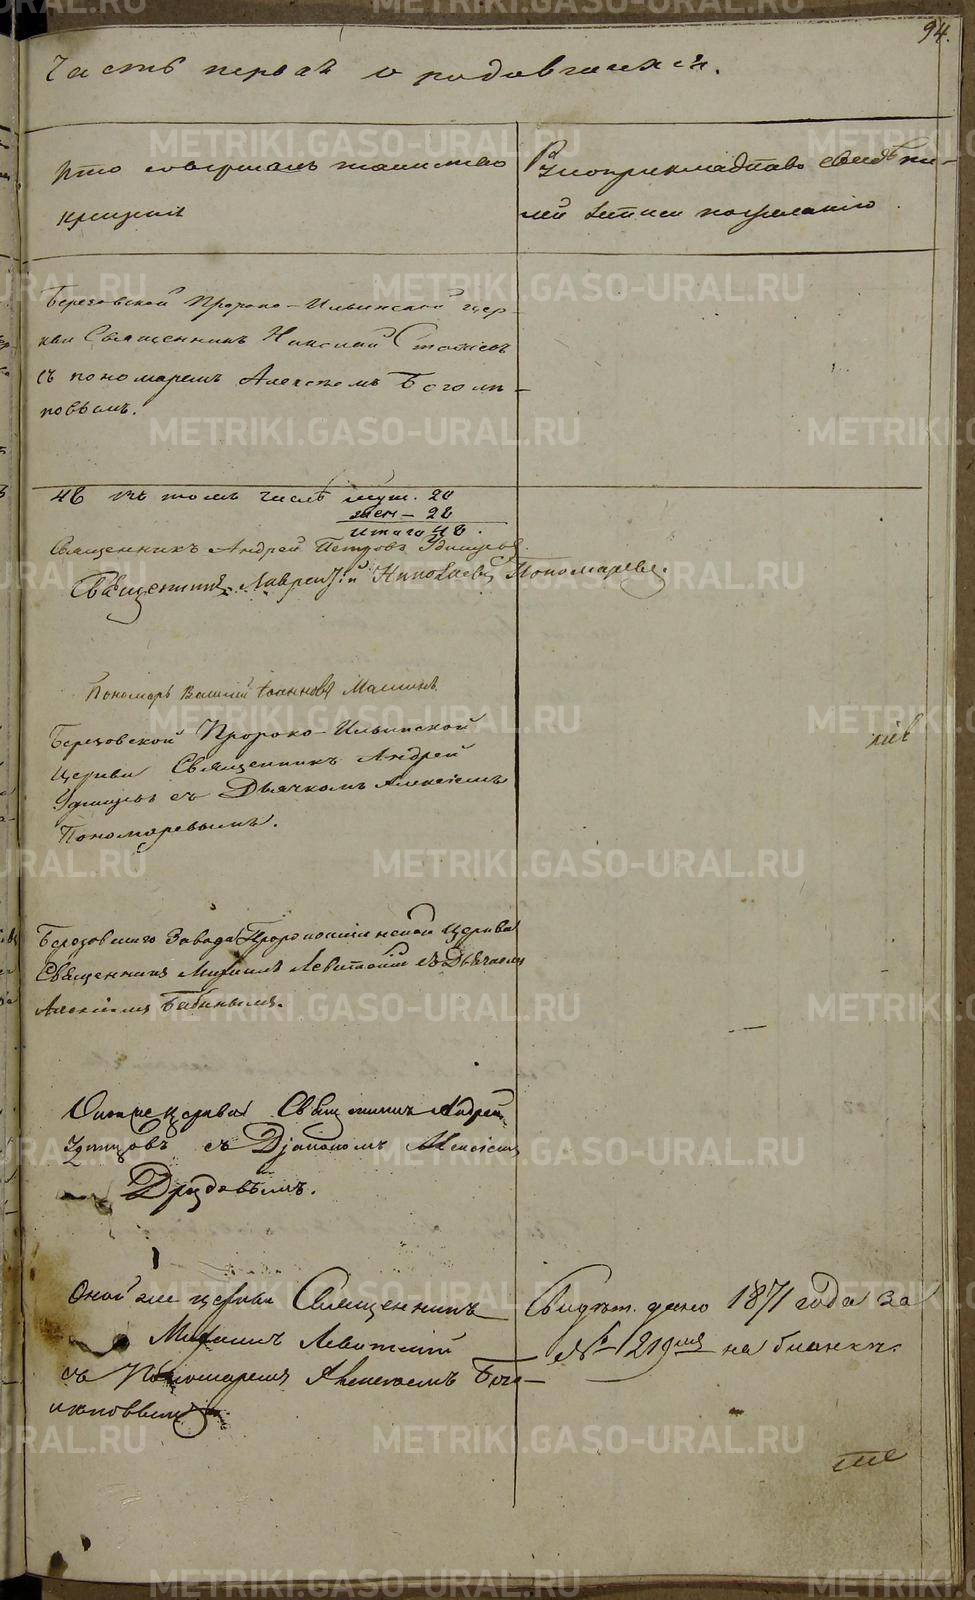 94.
Часть первая о родившихся.
Кто совершалъ таинство
крещенія
Рукоприкладство свидѣте-
лей записи по желанію
Березовской Пророко-Ильинской цер-
кви Священникъ Николай
съ пономаремъ Алексѣемъ Боголѣ-
повымъ.
48 въ томъ числѣ муж. 20
жен - 28
Итого 48.
Священникъ Андрей Петровъ Удинцовъ
Священникъ Лаврентій Николаевъ Пономаревъ.
Пономарь Василій Іоанновъ
Березовской Пророко-Ильинской
Церкви Священникъ Андрей
Удинцовъ съ Дьячкомъ Алексіемъ
Пономаревымъ.
Березовскаго Завода Пророкоильинской Церкви
Священникъ Михаилъ Левитскій съ Дьячкомъ
Алексіемъ Бабинымъ.
Оной же церкви Священникъ Андрей
Удинцовъ съ Діакономъ Алексіемъ
Оной же церкви Священникъ
Михаилъ Левитскій
съ Пономаремъ Алексѣемъ Бого-
лѣповымъ.
Свидѣт. дано 1871 года за
№ 1219 на бланкѣ.
METRIKI.GASO-URAL.RU